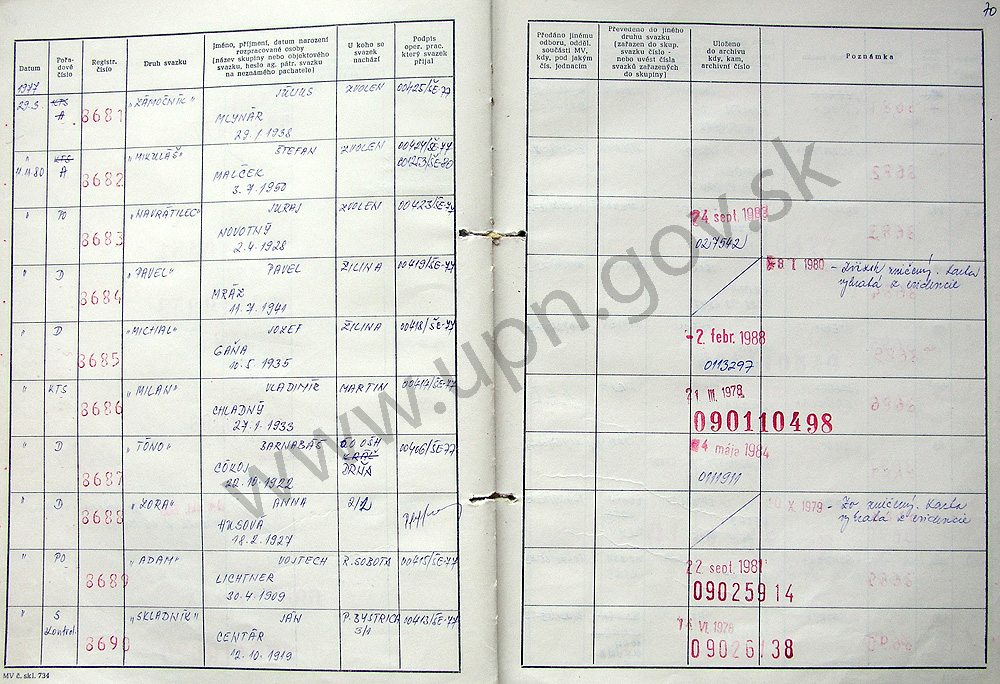 70
Datum
Pořadové číslo
Registr. číslo
Druh svazku
Jméno, příjmení, datum narození rozpracované osoby (název skupiny nebo objektového svazku, heslo ag. pátr. svazku na neznámého pachatele)
U koho se svazek nachází
Podpis oper. prac. který svazek přijal
Předáno jinému odboru, odděl. součásti MV, kdy, pod jakým čís. jednacím
Převedeno do jiného druhu svazku (zařazen do skup. svazku číslo - nebo uvést čísla svazků zařazených do skupiny)
Uloženo do archivu kdy, kam, archivní číslo
Poznámka
1977
29.3. KTS A 8681 „ZÁMOČNÍK“ JÚLIUS ZVOLEN 00425/ŠE-77
MLYNÁR
29.1.1938
" 11.11.80 KTS A 8682 „MIKULÁŠ“ ŠTEFAN ZVOLEN 00424/ŠE-77
001253/ŠE-80
MALČEK
3.7.1950
" PO 8683 „NAVRÁTILEC“ JURAJ ZVOLEN 00423/ŠE-77 24 sept. 1983
NOVOTNÝ 027542
2.4.1928
" D 8684 „PAVEL“ PAVEL ŽILINA 00419/ŠE-77 8. I. 1980 - Zväzok zničený. Karta
vybratá z evidencie
MRÁZ
11.7.1941
" D 8685 „MICHAL“ JOZEF ŽILINA 00418/ŠE-77 -2. febr. 1988
GAŇA 0113297
10.5.1935
" KTS 8686 „MILAN“ VLADIMÍR MARTIN 00417/ŠE-77 21 III. 1978
CHLADNÝ 090110498
27.1.1933
" D 8687 „TÓNO“ BARNABÁŠ OO OŠH 00406/ŠE-77 4 mája 1984
CÓKOJ DRŇA 0111911
22.10.1922
" D 8688 „ZORA“ ANNA 2/2 X. 1979 - Zv. zničený. Karta
vybratá z evidencie
HUSOVÁ
18.2.1927
" PO 8689 „ADAM“ VOJTECH R. SOBOTA 00415/ŠE-77 22 sept 1981
LICHTNER 09025914
30.4.1909
" S kontrol. 8690 „SKLADNÍK“ JÁN P. BYSTRICA 3/1 00413/ŠE-77 14 VI. 1978
CENTÁR 09026138
12.10.1919
MV č. skl. 734
www.upn.gov.sk